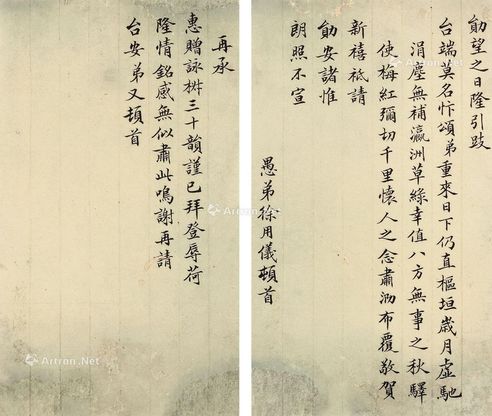 勛望之日隆引跂
台端莫名忭頌弟重來日下仍直樞垣歲月虛馳
涓塵無補瀛洲草綠幸值八方無事之秋驛
使梅紅彌切千里懷人之念肅泐布覆敬賀
新禧祗請
勛安諸惟
朗照不宣
愚弟徐用儀頓首
再承
惠贈詠樹三十韻謹已拜登辱荷
隆情銘感無似肅此鳴謝再請
台安弟又頓首
Artron.Net
Artron.Net